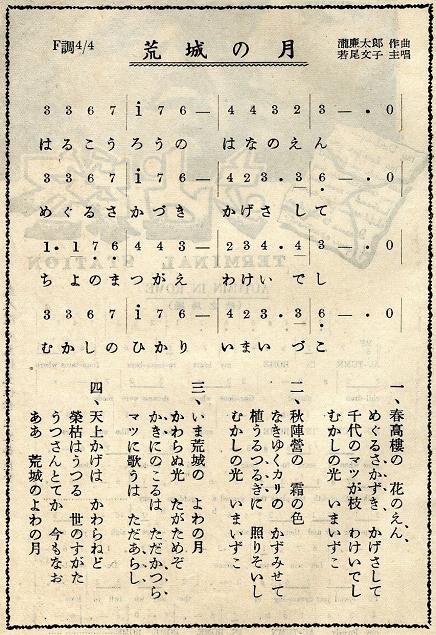 F調4/4
荒城の月
瀧廉太郎 作曲
若尾文子 主唱
3 3 6 7 | i 7 6 — | 4 4 3 2 | 3 — • 0
はるこうろうの はなのえん
3 3 6 7 | i 7 6 — | 4 2 3 • 3 | 6 — • 0
めぐるさかづき かげさして
1 • 1 7 6 | 4 4 3 — | 2 3 4 • 4 | 3 — • 0
ちよのまつがえ わけいでし
3 3 6 7 | i 7 6 — | 4 2 3 • 3 | 6 — • 0
むかしのひかり いまいづこ
一、春高樓の 花のえん、
めぐるさかずき かげさして
千代のマツが枝 わけいでし
むかしの光 いまいずこ
二、秋陣営の 霜の色
なきゆくカリの かずみせて
植うるつるぎに 照りそいし
むかしの光 いまいずこ
三、いま荒城の よわの月
かわらぬ光 たがためぞ
かきにのこるは ただかつら、
マツに歌うは ただあらし、
四、天上かげは かわらねど
榮枯はうつる 世のすがた
うつさんとてか 今もなお
ああ 荒城のよわの月
TERMINAL STATION
AUTUMN IN ROME